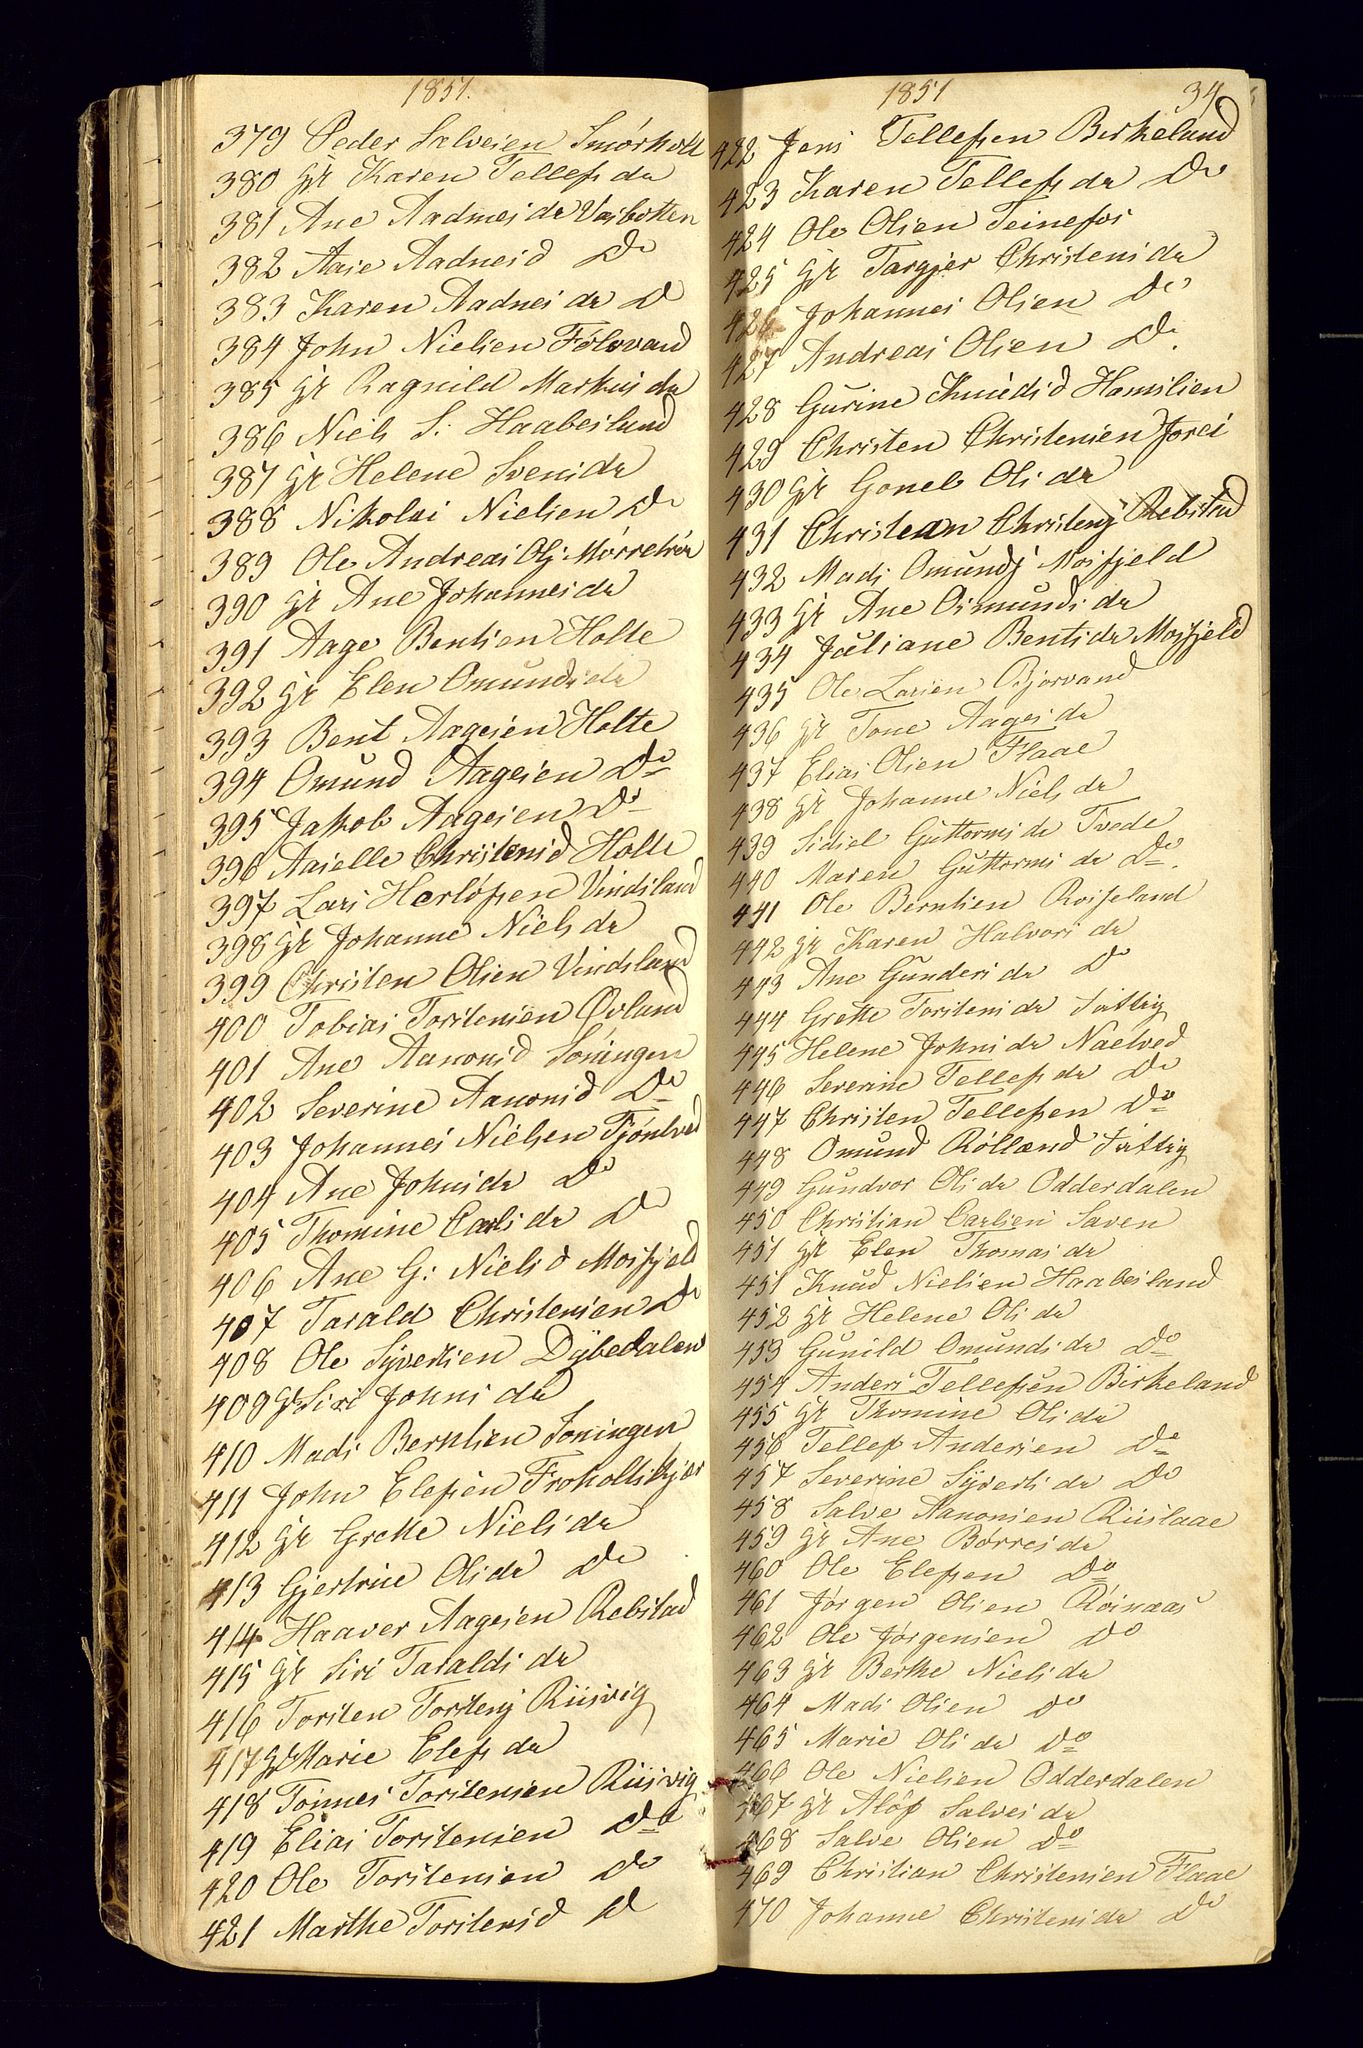 1851.
379 Peder Salvesen Smörholt
380 Gr Karen Tellefsdr
381 Ane Aadnesdr Vasbotten
382 Aase Aadnesd Do
383 Karen Aadnesdr Do
384 John Nielsen Fölvvand
385 Gr Ragnild Markusdr
386 Niels S: Haabesland
387 Gr Helene Svensdr
388 Nikolai Nielsen Do
389 Ole Andreas Olj
390 Gr Ane Johannesdr
391 Aage Bentsen Holte
392 Gr Elen Omundsdr
393 Bent Aagesen Holte
394 Omund Aagesen Do
395 Jakob Aagesen Do
396 Aaselle Christensd Holte
397 Lars Herlöfsen Vindsland
398 Gr Johanne Nielsdr
399 Christen Olsen Vindsland
400 Tobias Torstensen Övland
401 Ane Aanonsd Soningen
402 Severine Aanonsd Do
403 Johannes Nielsen Tjöntved
404 Ane Johnsdr Do
405 Thomine Carlsdr Do
406 Ane G: Nielsd Mosfjeld
407 Tarald Christensen Do
408 Ole Syvertsen Dybedalen
409 Gr Siri Johnsdr
410 Mads Berntsen Soningen
411 John Elefsen Froholtskjær
412 Gr Grethe Nielsdr
413 Gjertrine Olsdr Do
414 Haaver Aagesen Rebstad
415 Gr Siri Taraldsdr
416 Torsten Torstensj Riisvig
417 Gr Marie Elefsdr
418 Tönnes Torstensen Riisvig
419 Elias Torstensen Do
420 Ole Torstensen Do
421 Marthe Torstensd Do
1851 34
422 Jens Tellefsen Birkeland
423 Karen Tellefsdr Do
424 Ole Olsen Teinefos
425 Gr Targjer Christensdr
426 Johannes Olsen Do
427 Andreas Olsen Do.
428 Gurine Knudsd Hamslien
429 Christen Christensen Jorei
430 Gr Gonel Olsdr
431 Christean Christensj Rebstad
432 Mads Omundsj Mosfjeld
433 Gr Ane Osmundsdr
434 Juliane Bentsdr Mosfjeld
435 Ole Larsen Bjorvand
436 Gr Tone Aagesdr
437 Elias Olsen Flaae
438 Gr Johanne Nielsdr
439 Sidsel Guttormsdr Tvede
440 Maren Guttormsdr Do.
441 Ole Berntsen Roiseland
442 Gr Karen Halvorsdr
443 Ane Gundersdr Do
444 Grethe Torstensdr Fattig
445 Helene Johnsdr Naelved
446 Severine Tellefsdr Do
447 Christen Tellefsen Do
448 Omund Rölland Fattig
449 Gundvor Olsdr Odderdalen
450 Christian Carlsen Saven
451 Gr Elen Thomasdr
451 Knud Nielsen Haabesland
452 Gr Helene Olsdr
453 Gunild Omundsdr Do
454 Anders Tellefsen Birkeland
455 Gr Thomine Olsdr
456 Tellef Andersen Do
457 Severine Syvertsdr Do
458 Salve Aanonsen Riislaae
459 Gr Ane Börresdr
460 Ole Elefsen Do
461 Jörgen Olsen Röisnaas
462 Ole Jörgensen Do
463 Gr Berthe Nielsdr
464 Mads Olsen Do
465 Marie Olsdr Do
466 Ole Nielsen Odderdalen
467 Gr Alöf Salvesdr
468 Salve Olsen Do
469 Christian Christensen Flaae
470 Johanne Christensdr Do